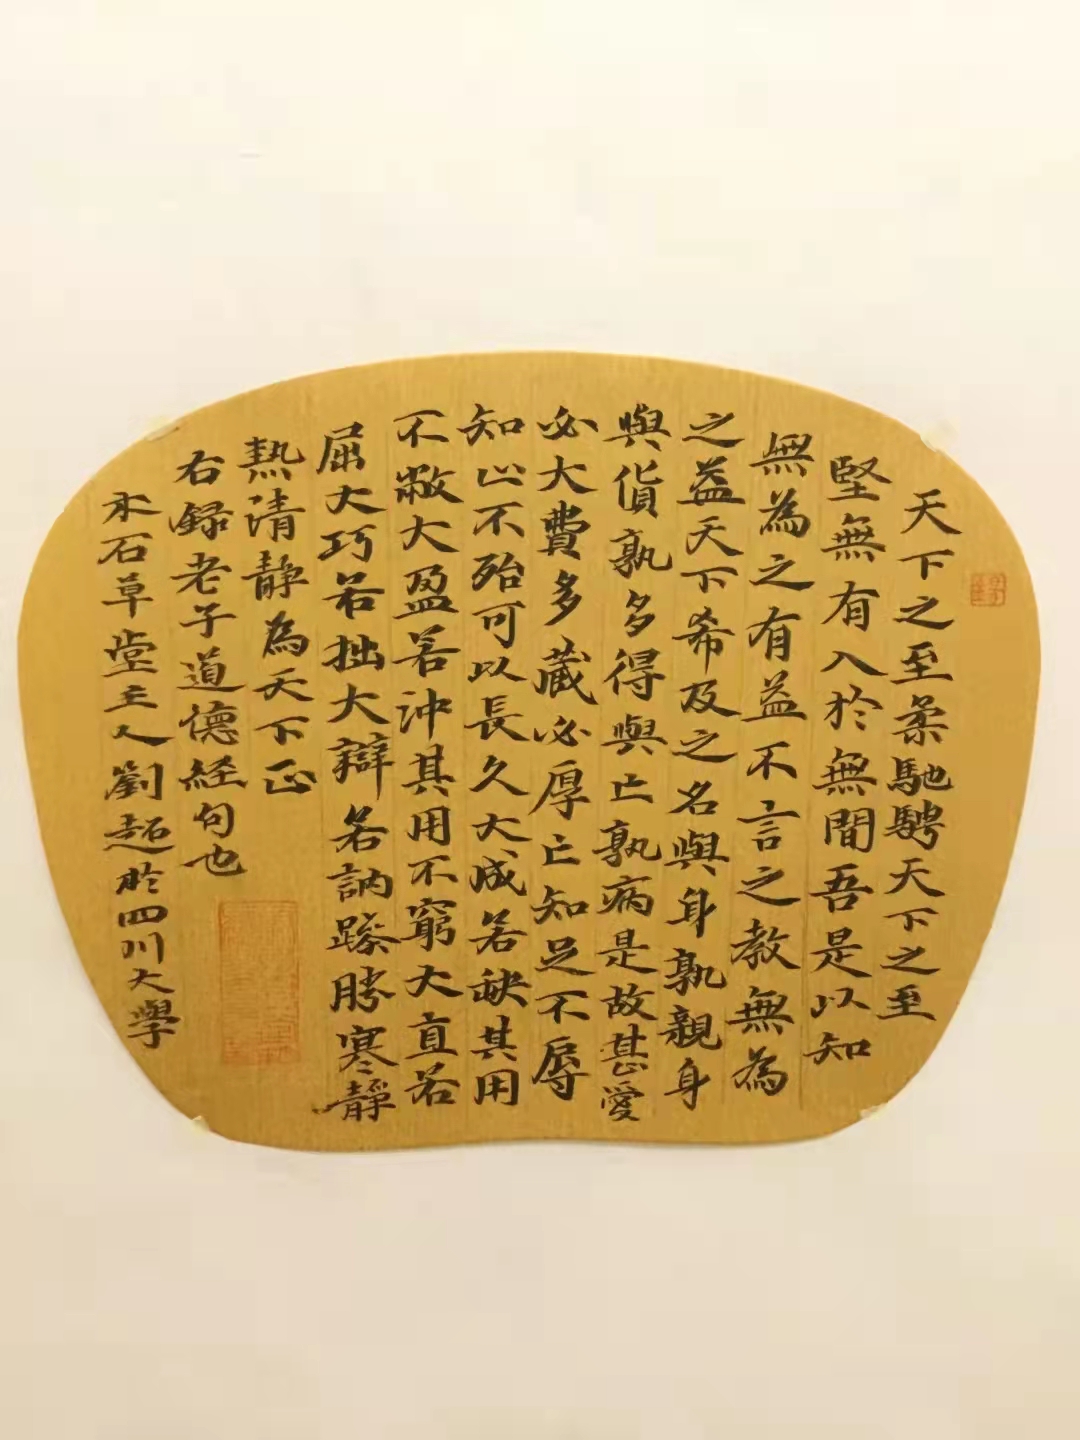 天下之至柔馳騁天下之至
堅無有入於無間吾是以知
無為之有益不言之教無為
之益天下希及之名與身孰親身
與貨孰多得與亡孰病是故甚愛
必大費多藏必厚亡知足不辱
知止不殆可以長久大成若缺其用
不敝大盈若沖其用不窮大直若
屈大巧若拙大辯若訥躁勝寒靜
熱清靜為天下正
右録老子道德経句也
石草堂主人劉超於四川大學